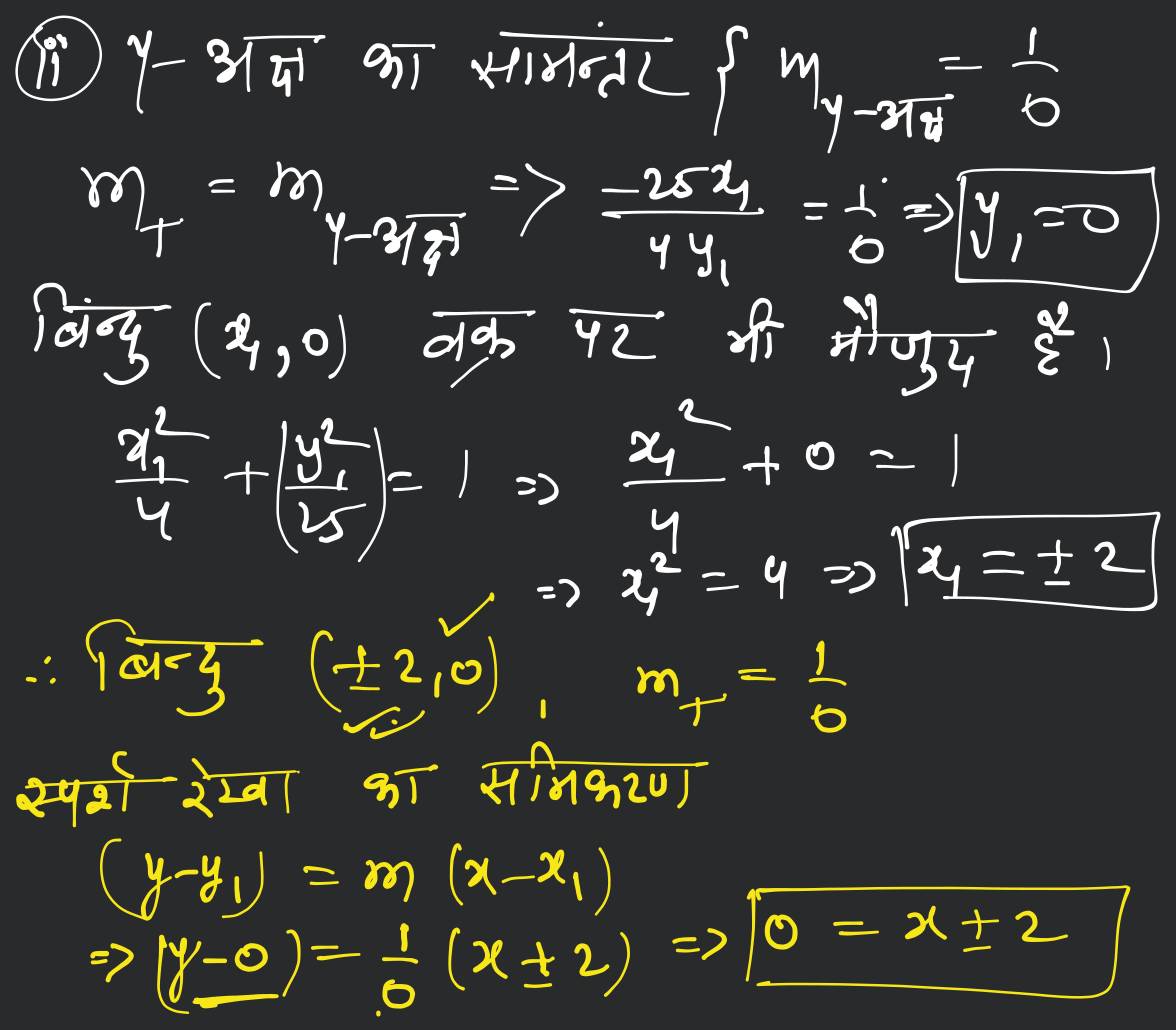 (ii) y-अक्ष का सामन्तर { m_y-अक्ष = 1/0
m_T = m_y-अक्ष => -25x₁/4y₁ = 1/0 => y₁ = 0
बिंन्दु (x₁, 0) वक्र पर भी मौजुद है।
x₁²/4 + (y₁²/25) = 1 => x₁²/4 + 0 = 1
=> x₁² = 4 => x₁ = ± 2
∴ बिन्दु (± 2, 0) , m_T = 1/0
स्पर्श रेखा का समिकरण
(y-y₁) = m (x-x₁)
=> (y-0) = 1/0 (x ± 2) => 0 = x ± 2